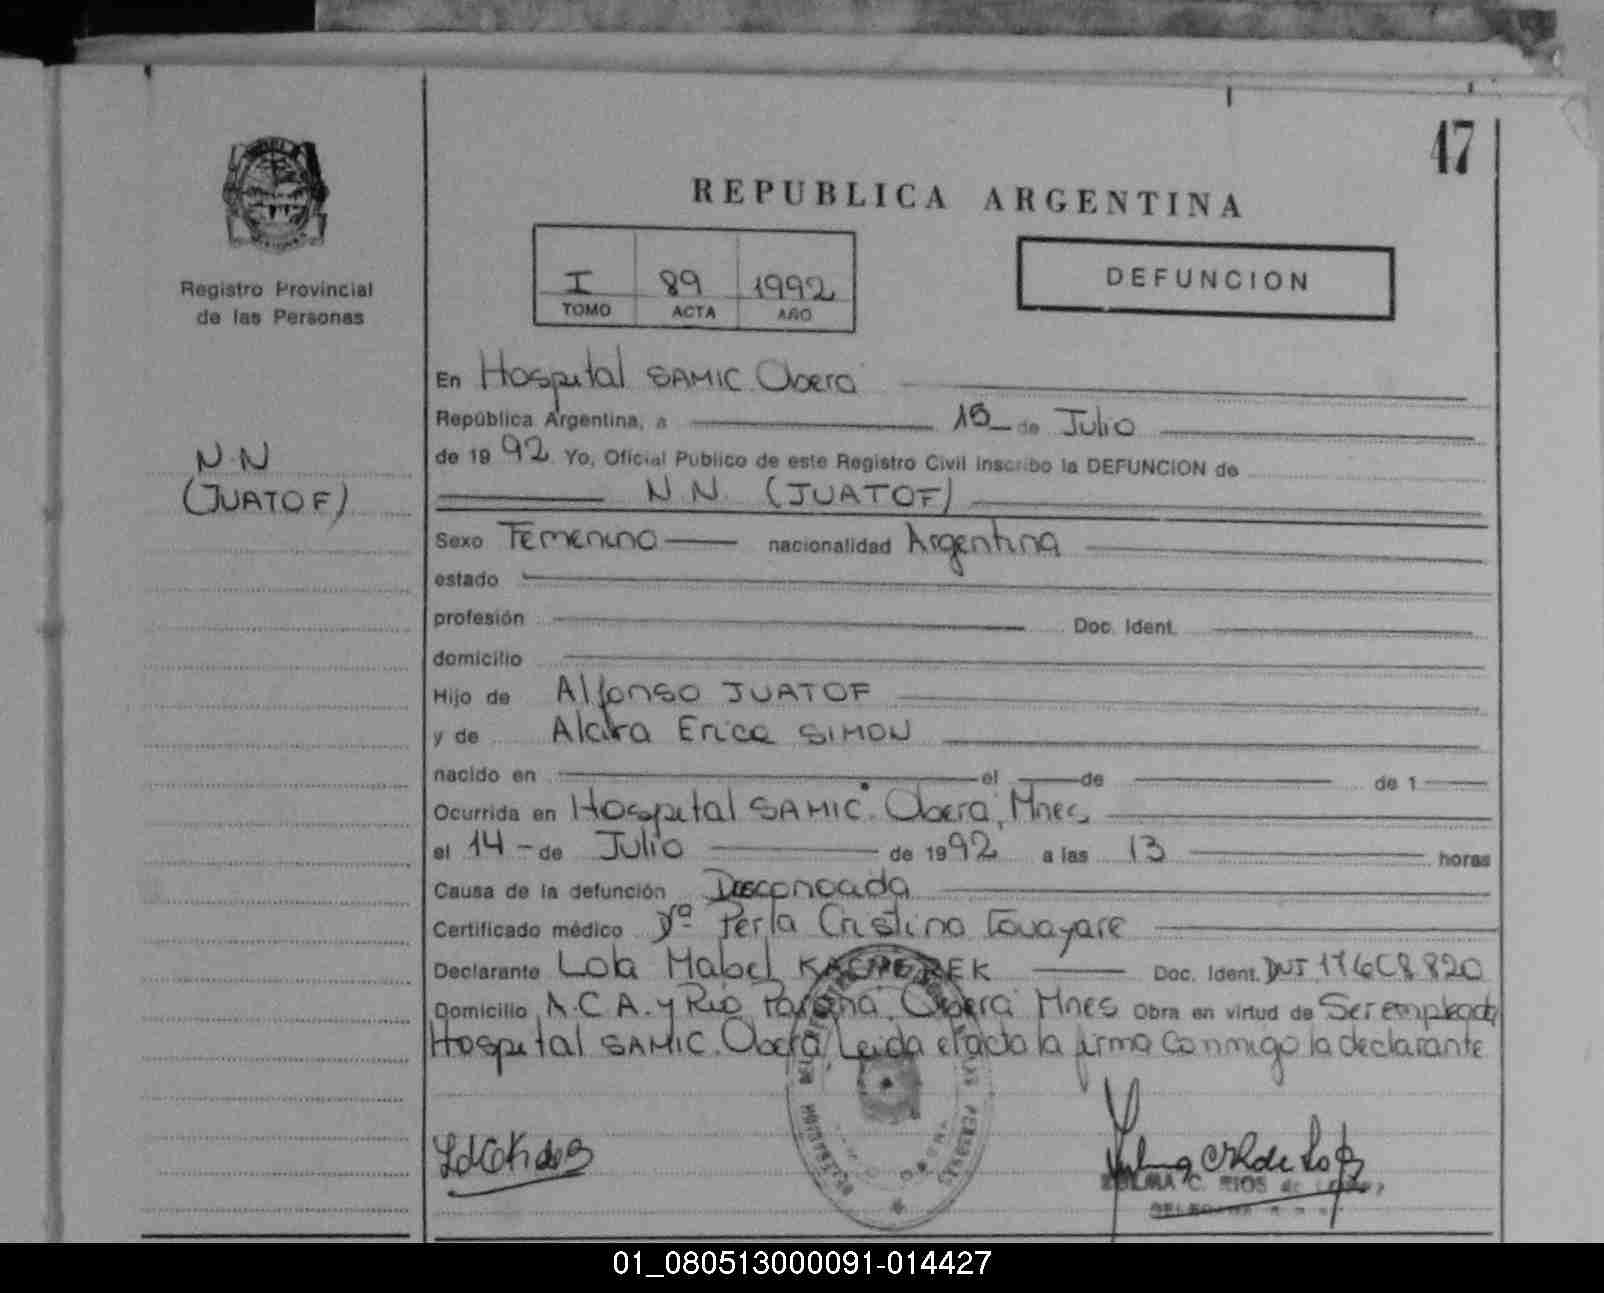 47
REPUBLICA ARGENTINA
I 89 1992
TOMO ACTA AÑO
DEFUNCION
Registro Provincial
de las Personas
N.N
(JUATOF)
En Hospital SAMIC. Oberá
República Argentina, a 15 de Julio
de 19 92 Yo, Oficial Publico de este Registro Civil inscribo la DEFUNCION de
N.N. (JUATOF)
Sexo Femenino nacionalidad Argentina
estado
profesión Doc. Ident.
domicilio
Hijo de Alfonso JUATOF
y de Alcira Erica SIMON
nacido en el de de 1
Ocurrida en Hospital SAMIC. Oberá, Mnes,
el 14 - de Julio de 1992 a las 13 horas
Causa de la defunción Desconocida
Certificado médico Dra Perla Cristina
Declarante Lola Mabel Doc. Ident. DNI
Domicilio A.C.A. y Rio Paraná, Oberá Mnes Obra en virtud de Ser empleada
Hospital SAMIC. Oberá, Leida el acta la firma conmigo la declarante
ZULMA C. RIOS de LOPEZ
01_080513000091-014427